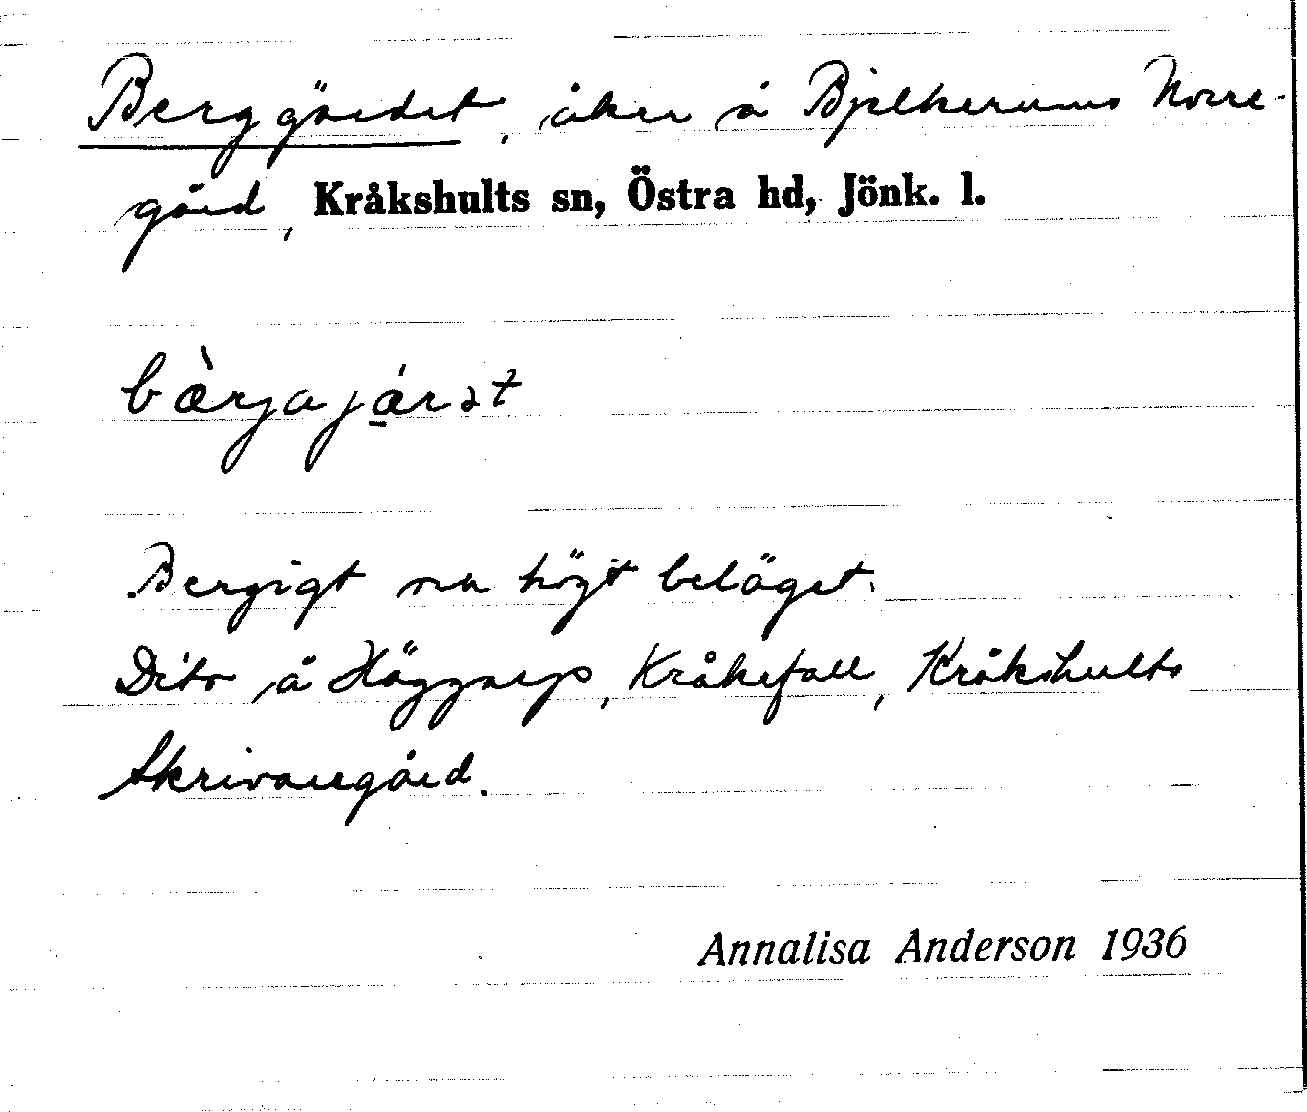 Berggärdet, åker å Bjälkerums Norre-
gård, Kråkshults sn, Östra hd, Jönk. l.
bærjajærət
Bergigt och högt beläget.
Dito å Häggarp, Kråkefall, Kråkshults
Skrivaregård.
Annalisa Anderson 1936